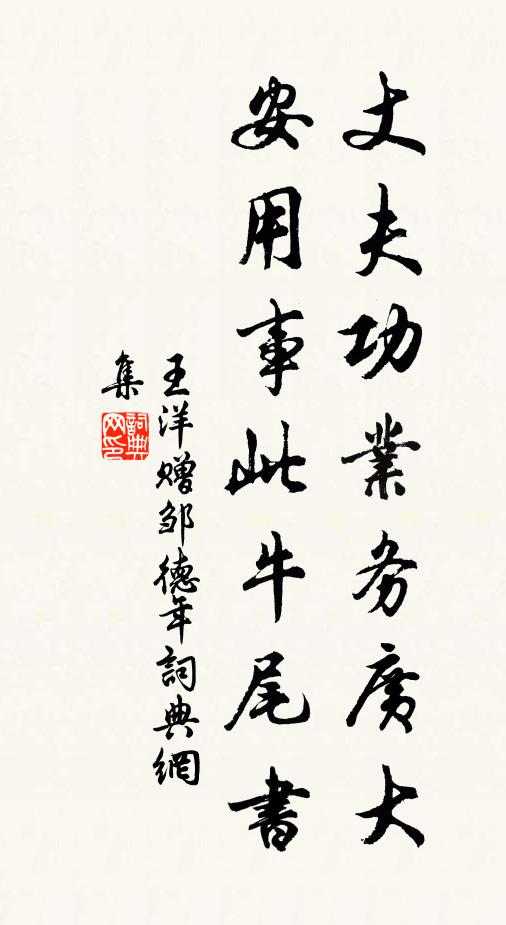 丈夫功業务廣大
安用事此牛尾書
王洋赠邹德年詞典網
集
詞典
网印